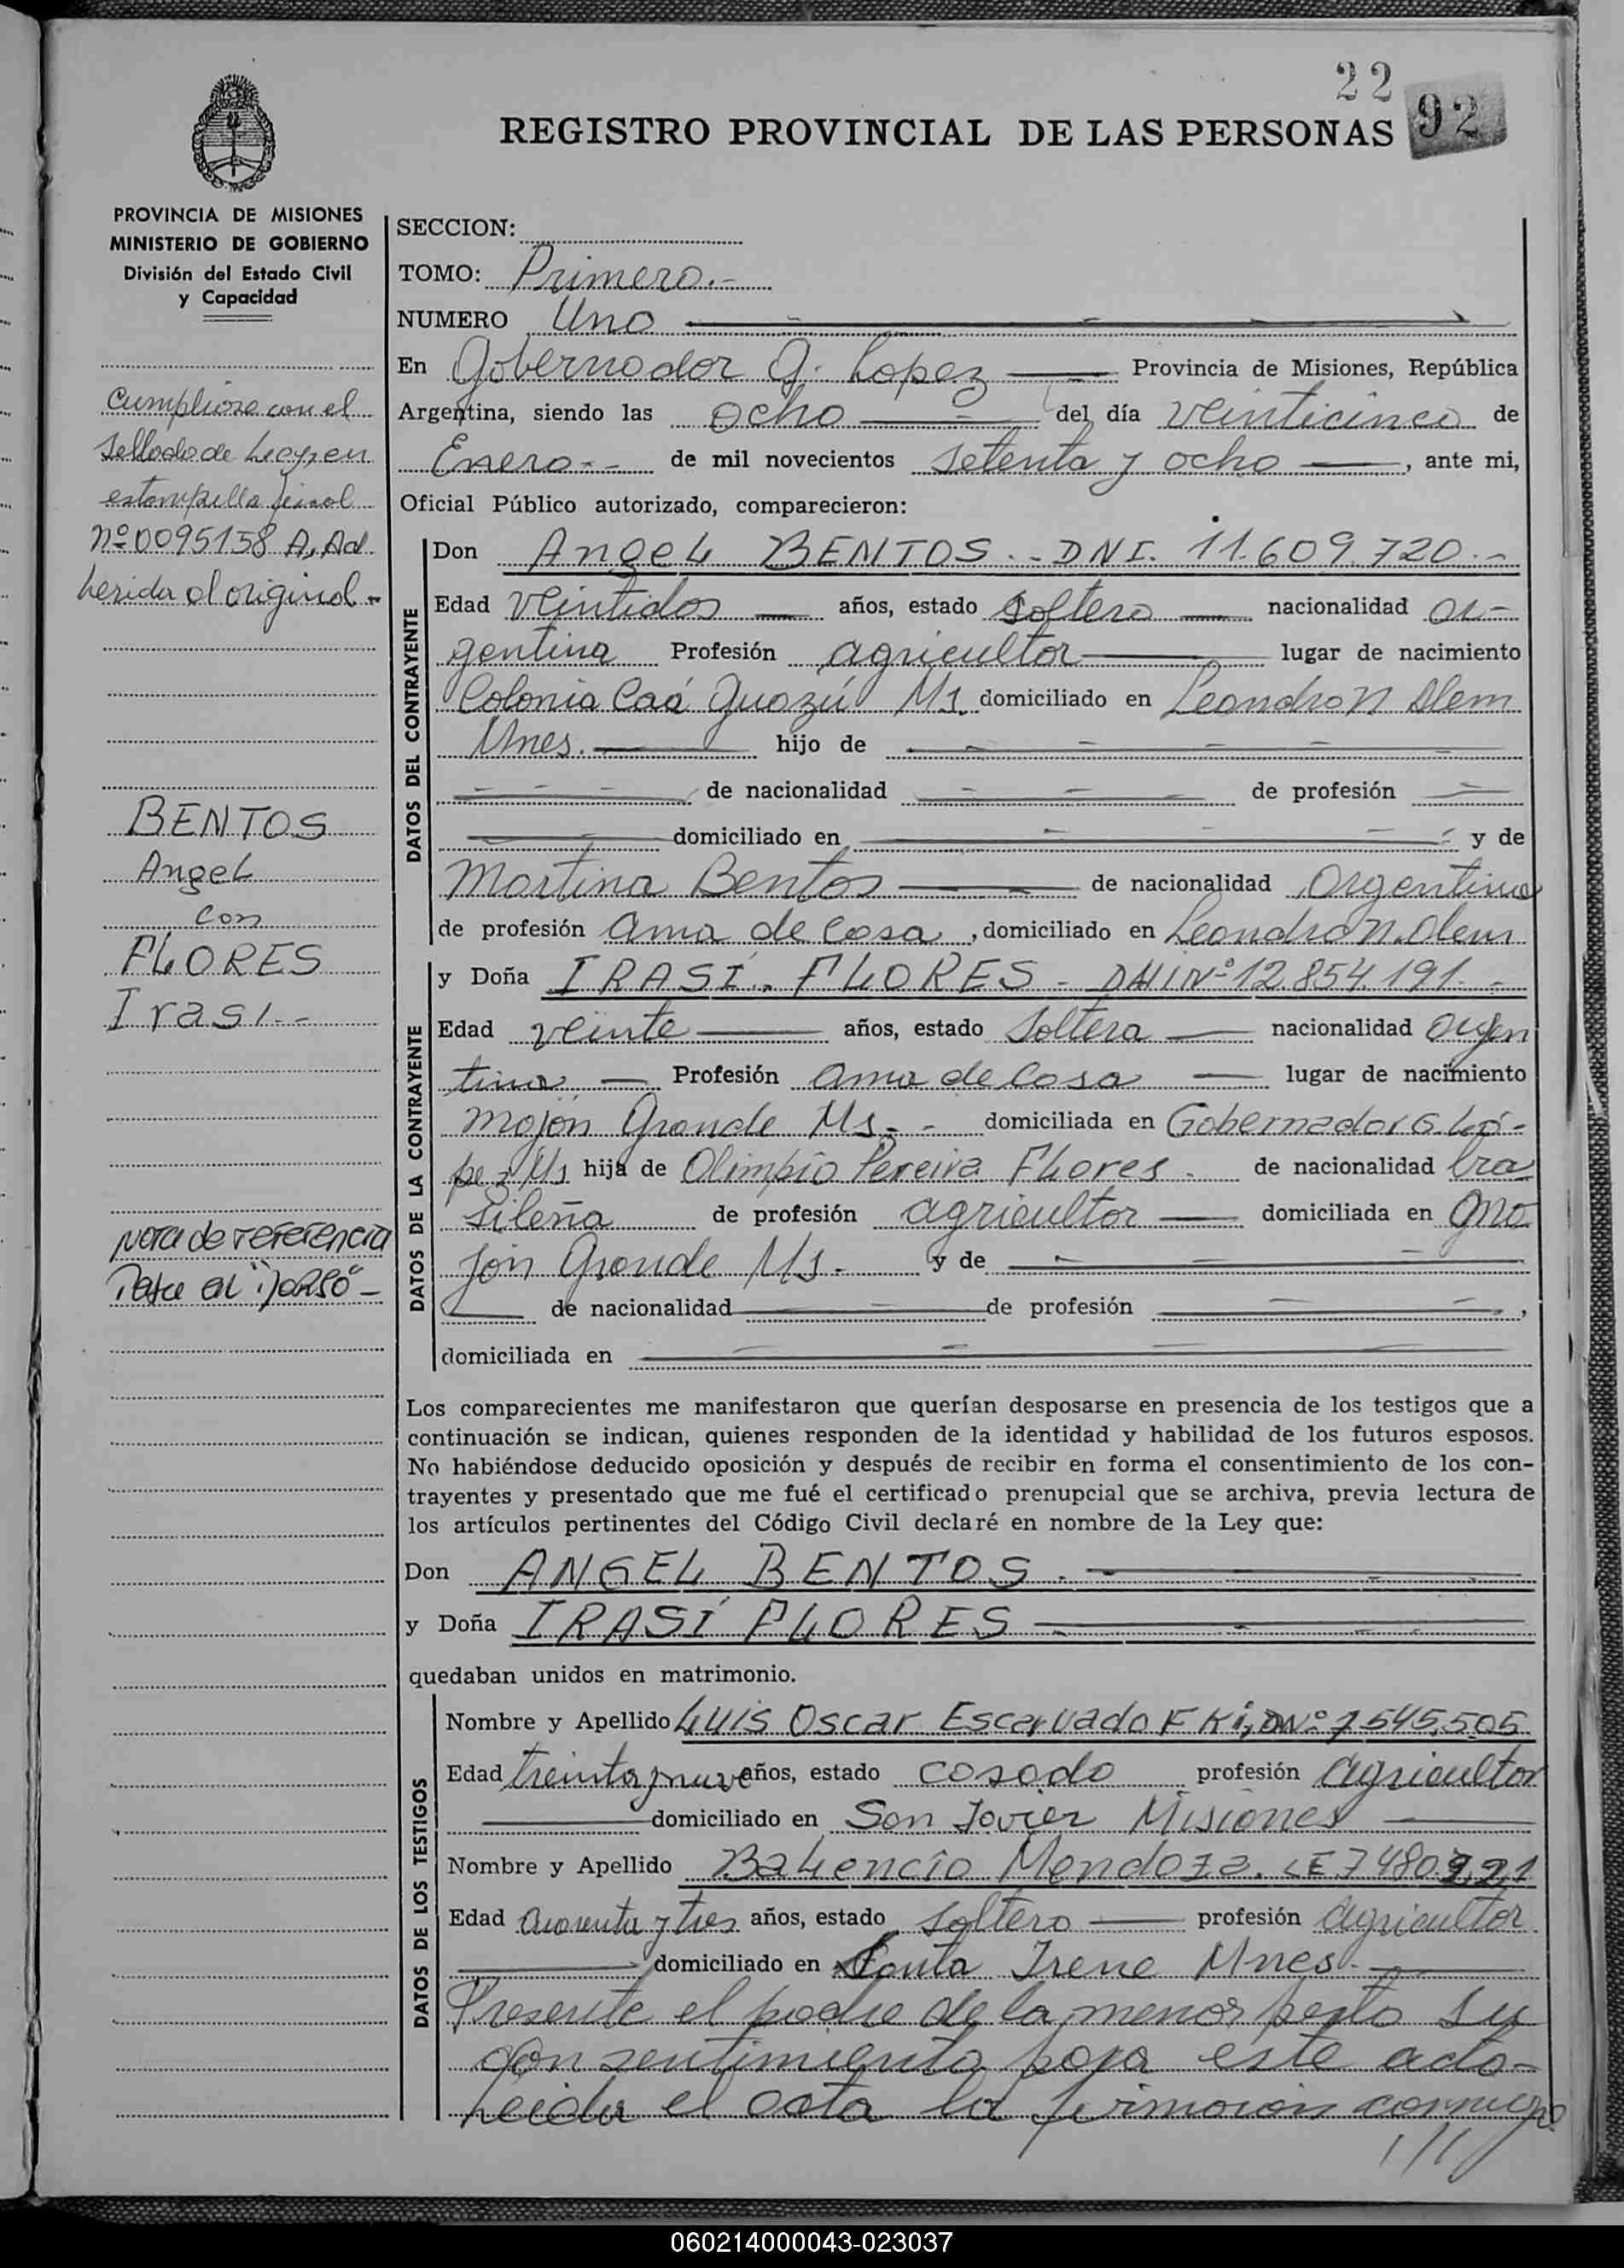 22
92
REGISTRO PROVINCIAL DE LAS PERSONAS
PROVINCIA DE MISIONES
MINISTERIO DE GOBIERNO
División del Estado Civil
y Capacidad
Cumplióse con el
Sellado de Ley en
estampilla fiscal
Nº 0095158 A, Ad
herida al original.-
BENTOS
Angel
con
FLORES
Irasí.-
Nota de referencia
Pase al "DORSO"-
SECCION:
TOMO: Primero.-
NUMERO Uno
En Gobernador G. Lopez Provincia de Misiones, República
Argentina, siendo las ocho del día veinticinco de
Enero.- de mil novecientos setenta y ocho, ante mi,
Oficial Público autorizado, comparecieron:
DATOS DEL CONTRAYENTE
Don Angel BENTOS.- DNI. 11.609.720.-
Edad veintidos años, estado soltero nacionalidad ar-
gentina Profesión agricultor lugar de nacimiento
Colonia Caá Guazú Ms. domiciliado en Leandro N Alem
Mnes. hijo de
de nacionalidad de profesión
domiciliado en y de
Martina Bentos de nacionalidad Argentina
de profesión ama de casa, domiciliado en Leandro N. Alem
DATOS DE LA CONTRAYENTE
y Doña IRASÍ.. FLORES - DNI Nº 12.854.191.-
Edad veinte años, estado soltera nacionalidad argen
tina Profesión ama de casa lugar de nacimiento
Mojón Grande Ms.- domiciliada en Gobernador G. Ló-
pez Ms hija de Olimpio Pereira Flores. de nacionalidad bra
sileña de profesión agricultor domiciliada en Mo
jón Grande Ms.- y de
de nacionalidad de profesión ,
domiciliada en
Los comparecientes me manifestaron que querían desposarse en presencia de los testigos que a
continuación se indican, quienes responden de la identidad y habilidad de los futuros esposos.
No habiéndose deducido oposición y después de recibir en forma el consentimiento de los con-
trayentes y presentado que me fué el certificado prenupcial que se archiva, previa lectura de
los artículos pertinentes del Código Civil declaré en nombre de la Ley que:
Don ANGEL BENTOS.-
y Doña IRASÍ FLORES
quedaban unidos en matrimonio.
DATOS DE LOS TESTIGOS
Nombre y Apellido Luis Oscar 7.545.505
Edad treinta y nueve años, estado casado profesión agricultor
domiciliado en San Javier Misiones
Nombre y Apellido Balencio Mendoza. LE 7480.221
Edad cuarenta y tres años, estado soltero profesión agricultor
domiciliado en Santa Irene Mnes.
Presente el padre de la menor presta su
consentimiento para este acto-
Leida el acta la firmaron conmigo
///
060214000043-023037